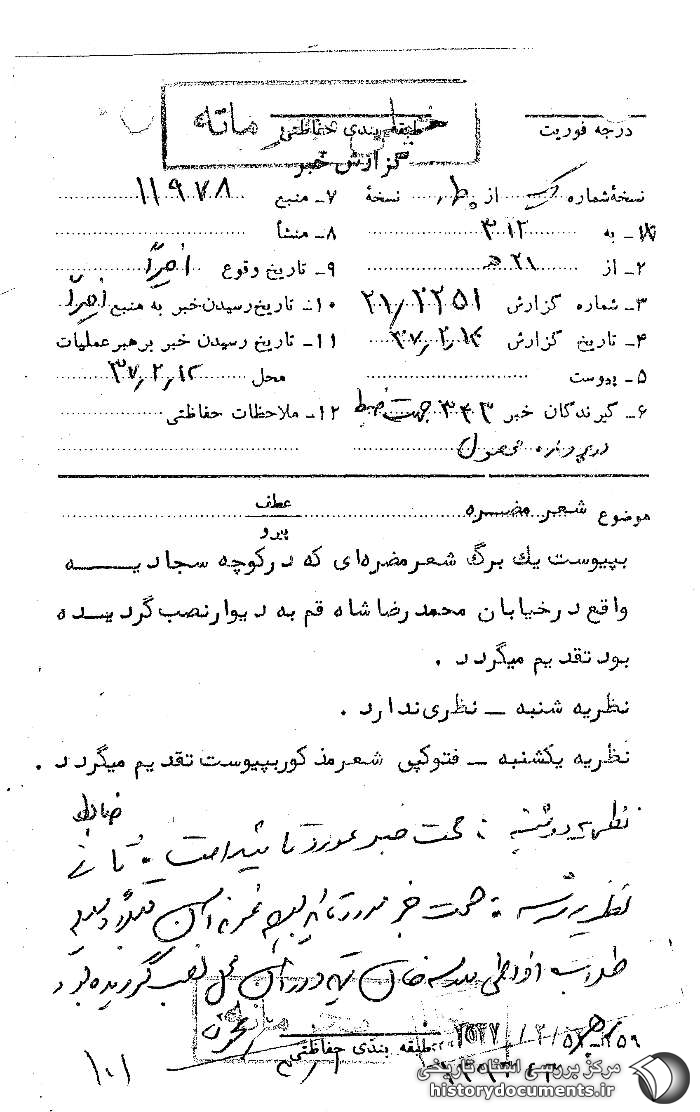 خیلی محرمانه
طبقه بندی حفاظتی
درجه فوریت
گزارش خبر
نسخهٔ شماره یک از نسخهٔ
۷ـ منبع ۱۱۹۷۸
۱ـ به ۳۱۲
۸ـ منشأ
۲ـ از ۲۱ ه‍
۹ـ تاریخ وقوع اخیراً
۳ـ شماره گزارش ۲۱/۲۲۵۱
۱۰ـ تاریخ رسیدن خبر به منبع اخیراً
۴ـ تاریخ گزارش ۳۷/۲/۱۴
۱۱ـ تاریخ رسیدن خبر برهبر عملیات
۵ـ پیوست
محل ۳۷/۲/۱۲
۶ـ گیرندگان خبر ۳۴۳ جهت ضبط
۱۲ـ ملاحظات حفاظتی
در پرونده محصول
موضوع شعر مضره
عطف
پیرو
بپیوست یك برگ شعر مضره‌ای که در کوچه سجادیـــه
واقع در خیابان محمد رضا شاه قم به دیوار نصب گردیـده
بود تقدیم میگردد .
نظریه شنبه ـ نظری ندارد .
نظریه یکشنبه ـ فتوکپی شعر مذکور بپیوست تقدیم میگردد .
نظریه دوشنبه : صحت خبر مورد تائید است .
نظریه سه‌شنبه : صحت خبر مورد تائید
طلاب افراطی مدرسه خان تهیه و در آن محل نصب گردیده بود
طبقه بندی حفاظتی
۱۰۱
مرکز بررسی اسناد تاریخی
historydocuments.ir